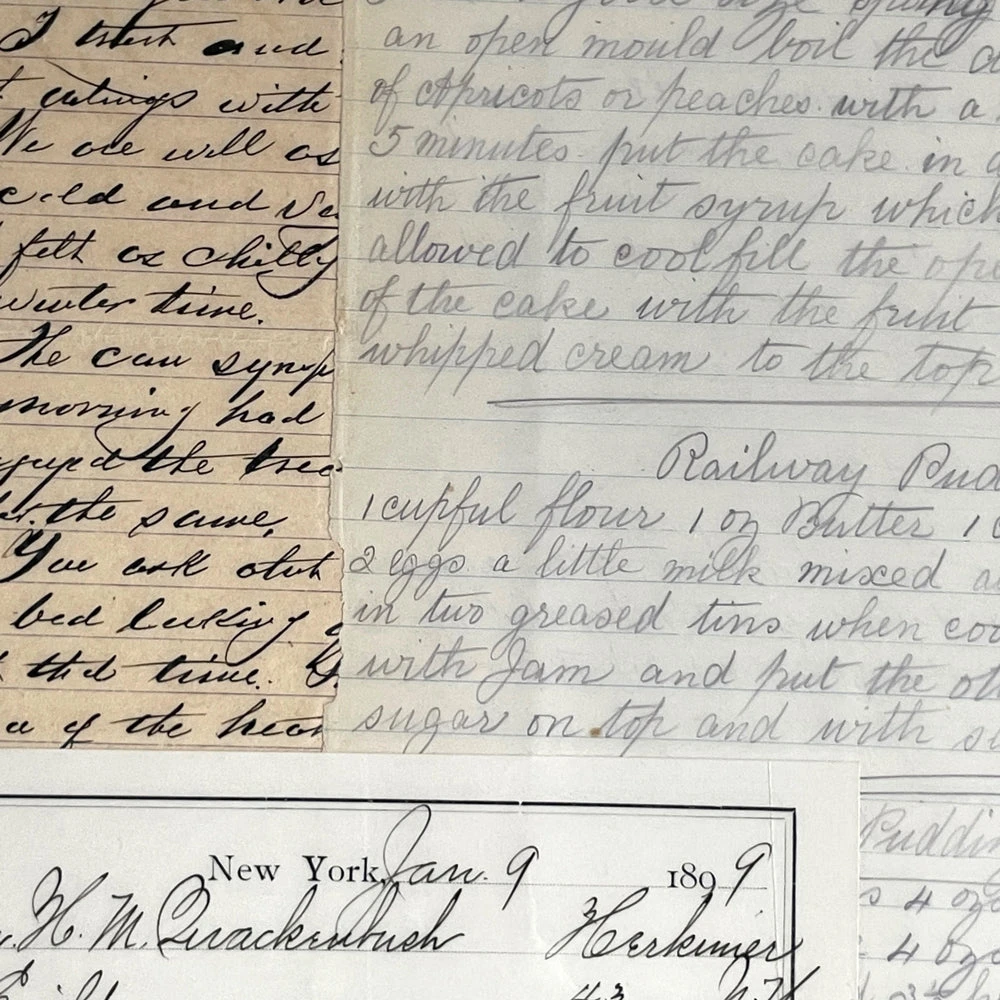 I trust and
with
We are well as
cold and
felt as chilly
winter time.
The can syrup
morning had
the tree
the same.
You ask
bed looking
time.
of the
an open mould boil the
of Apricots or peaches with a
5 minutes put the cake in a
with the fruit syrup which
allowed to cool fill the ope
of the cake with the fruit
whipped cream to the top
Railway Pud
1 cupful flour 1 oz Butter 1
2 eggs a little milk mixed a
in two greased tins when coo
with Jam and put the ot
sugar on top and with s
Puddin
s 4 ozs
4 ozs
New York, Jan. 9 1899
H. M. Quackenbush Herkimer
N.Y.